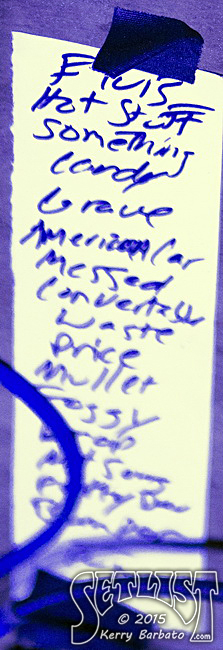 Elvis
Hot Stuff
Something
Candy
Grave
American Car
Messed
Convertible
Waste
Price
Mullet
Foggy
SETLIST
© 2015
Kerry Barbato